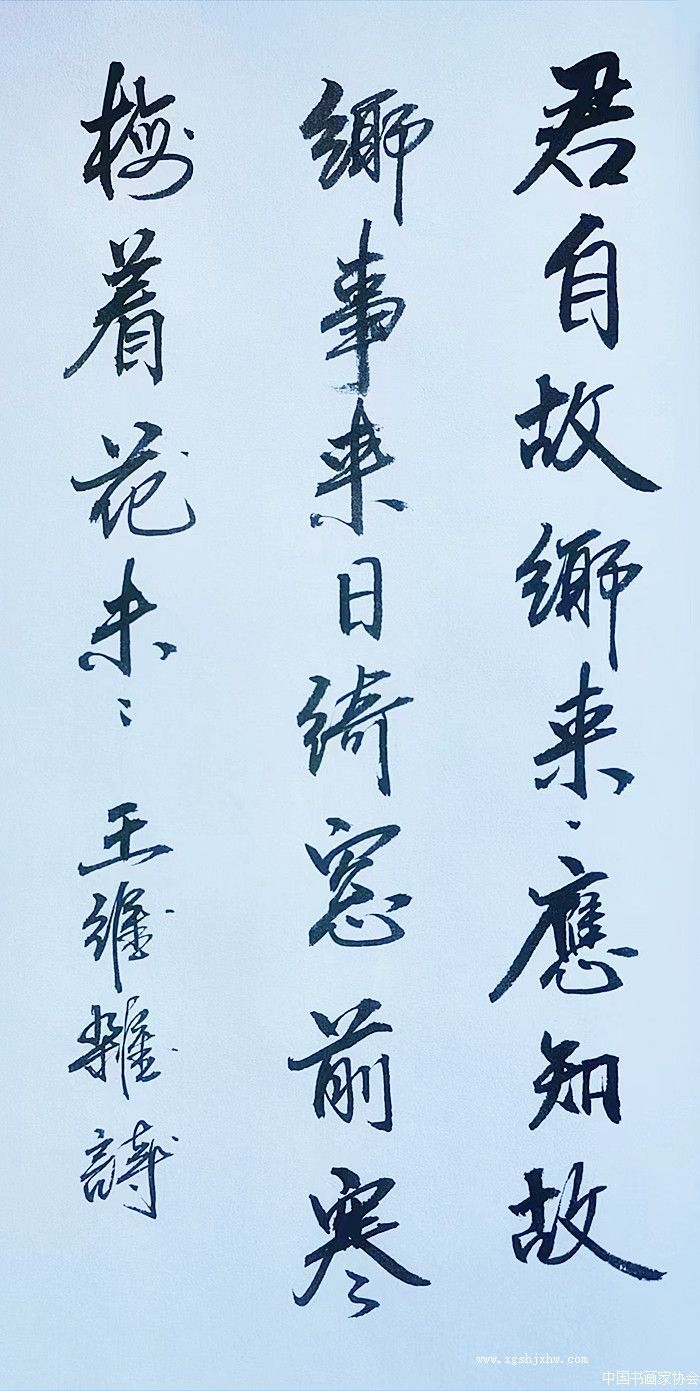 君自故鄉来、應知故
鄉事来日綺窓前寒
梅着花未、、王維雜詩
www.zgshjxhw.com
中国书画家协会